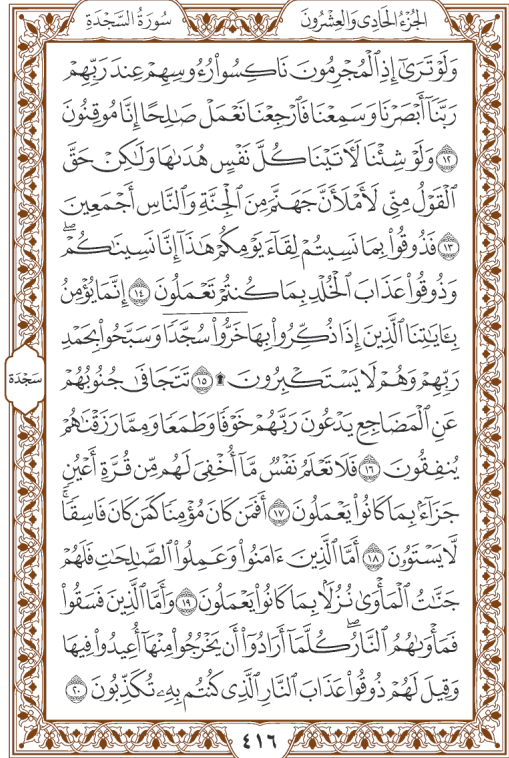 سُورَةُ السَّجْدَةِ
الجُزْءُ الحَادِي وَالعِشْرُونَ
وَلَوْ تَرَىٰٓ إِذِ ٱلْمُجْرِمُونَ نَاكِسُوا۟ رُءُوسِهِمْ عِندَ رَبِّهِمْ
رَبَّنَآ أَبْصَرْنَا وَسَمِعْنَا فَٱرْجِعْنَا نَعْمَلْ صَٰلِحًا إِنَّا مُوقِنُونَ
١٢ وَلَوْ شِئْنَا لَءَاتَيْنَا كُلَّ نَفْسٍ هُدَىٰهَا وَلَٰكِنْ حَقَّ
ٱلْقَوْلُ مِنِّى لَأَمْلَأَنَّ جَهَنَّمَ مِنَ ٱلْجِنَّةِ وَٱلنَّاسِ أَجْمَعِينَ
١٣ فَذُوقُوا۟ بِمَا نَسِيتُمْ لِقَآءَ يَوْمِكُمْ هَٰذَآ إِنَّا نَسِينَٰكُمْ ۖ
وَذُوقُوا۟ عَذَابَ ٱلْخُلْدِ بِمَا كُنتُمْ تَعْمَلُونَ ١٤ إِنَّمَا يُؤْمِنُ
بِـَٔايَٰتِنَا ٱلَّذِينَ إِذَا ذُكِّرُوا۟ بِهَا خَرُّوا۟ سُجَّدًا وَسَبَّحُوا۟ بِحَمْدِ
رَبِّهِمْ وَهُمْ لَا يَسْتَكْبِرُونَ ۩ ١٥ تَتَجَافَىٰ جُنُوبُهُمْ
سَجْدَة
عَنِ ٱلْمَضَاجِعِ يَدْعُونَ رَبَّهُمْ خَوْفًا وَطَمَعًا وَمِمَّا رَزَقْنَٰهُمْ
يُنفِقُونَ ١٦ فَلَا تَعْلَمُ نَفْسٌ مَّآ أُخْفِىَ لَهُم مِّن قُرَّةِ أَعْيُنٍ
جَزَآءًۢ بِمَا كَانُوا۟ يَعْمَلُونَ ١٧ أَفَمَن كَانَ مُؤْمِنًا كَمَن كَانَ فَاسِقًا ۚ
لَّا يَسْتَوُۥنَ ١٨ أَمَّا ٱلَّذِينَ ءَامَنُوا۟ وَعَمِلُوا۟ ٱلصَّٰلِحَٰتِ فَلَهُمْ
جَنَّٰتُ ٱلْمَأْوَىٰ نُزُلًۢا بِمَا كَانُوا۟ يَعْمَلُونَ ١٩ وَأَمَّا ٱلَّذِينَ فَسَقُوا۟
فَمَأْوَىٰهُمُ ٱلنَّارُ ۖ كُلَّمَآ أَرَادُوٓا۟ أَن يَخْرُجُوا۟ مِنْهَآ أُعِيدُوا۟ فِيهَا
وَقِيلَ لَهُمْ ذُوقُوا۟ عَذَابَ ٱلنَّارِ ٱلَّذِى كُنتُم بِهِۦ تُكَذِّبُونَ ٢٠
٤١٦